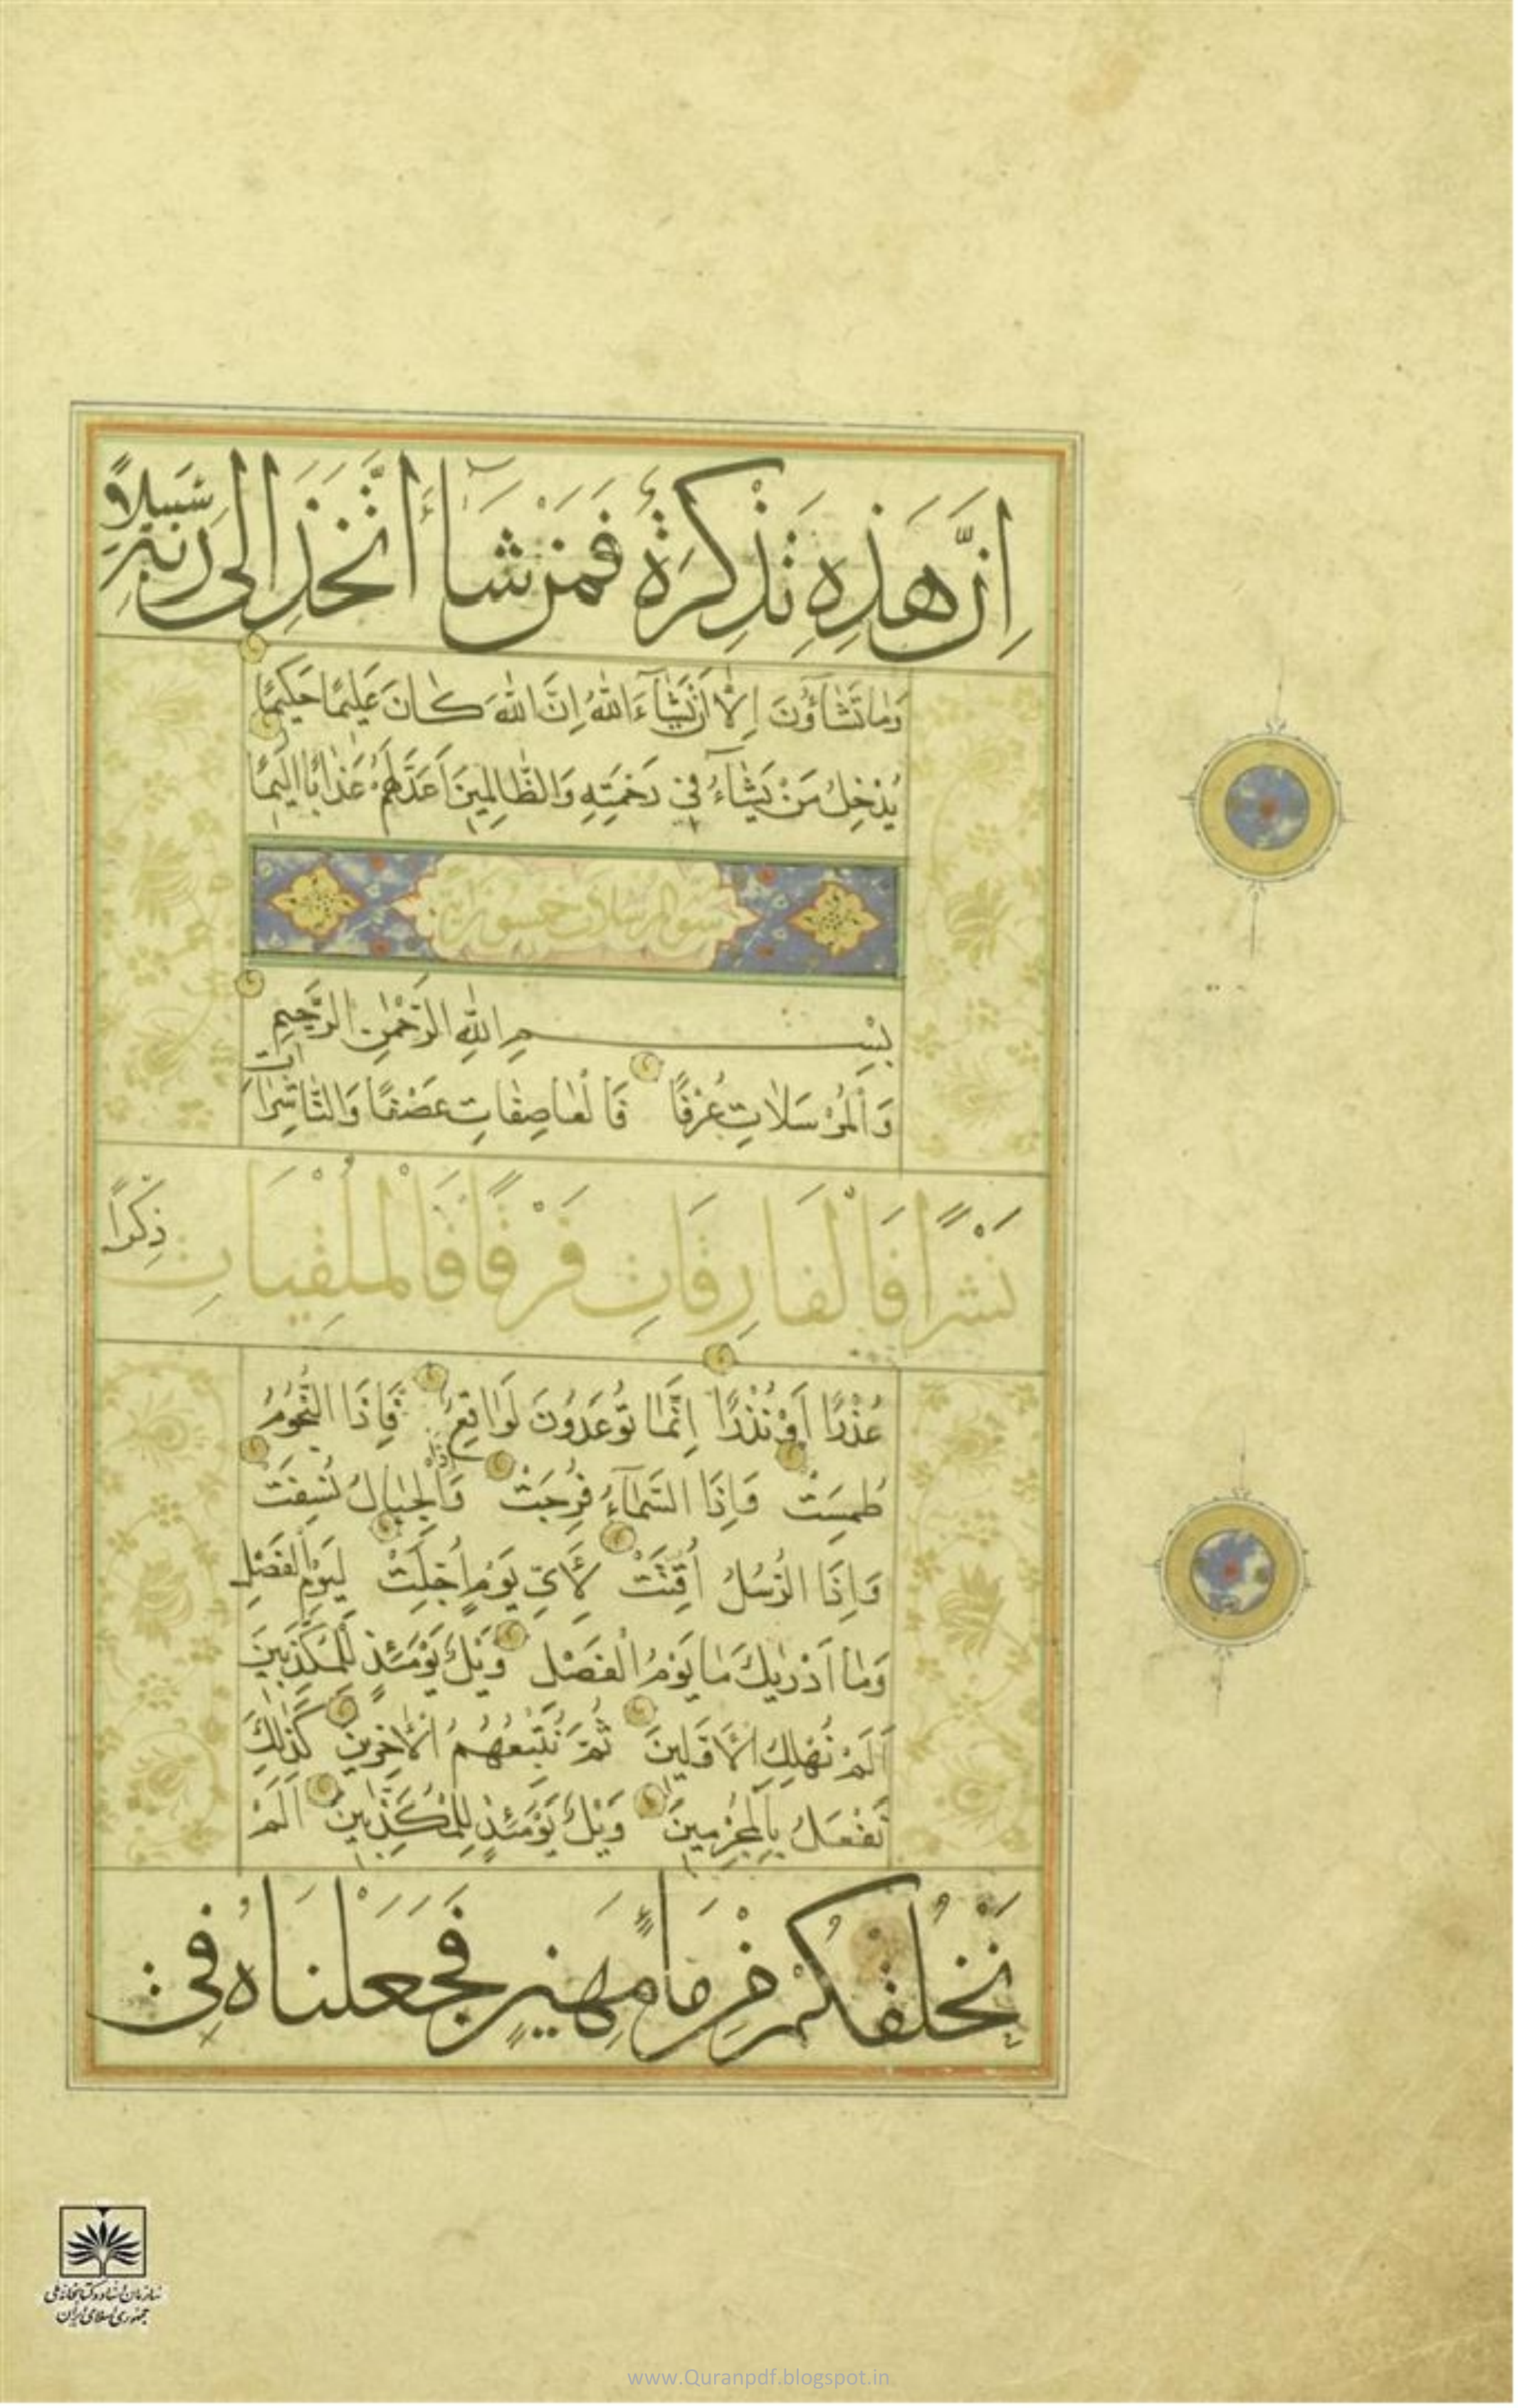 اِنَّ هَذِهِ تَذْكِرَةٌ فَمَنْ شَآءَ اتَّخَذَ اِلَى رَبِّهِ سَبِيلًا
وَمَا تَشَآؤُنَ اِلَّا اَنْ يَشَآءَ اللّٰهُ اِنَّ اللّٰهَ كَانَ عَلِيمًا حَكِيمًا
يُدْخِلُ مَنْ يَشَآءُ فِي رَحْمَتِهِ وَالظَّالِمِينَ اَعَدَّ لَهُمْ عَذَابًا اَلِيمًا
بِسْمِ اللّٰهِ الرَّحْمٰنِ الرَّحِيمِ
وَالْمُرْسَلَاتِ عُرْفًا فَالْعَاصِفَاتِ عَصْفًا وَالنَّاشِرَاتِ
نَشْرًا فَالْفَارِقَاتِ فَرْقًا فَالْمُلْقِيَاتِ ذِكْرًا
عُذْرًا اَوْ نُذْرًا اِنَّمَا تُوعَدُونَ لَوَاقِعٌ فَاِذَا النُّجُومُ
طُمِسَتْ وَاِذَا السَّمَآءُ فُرِجَتْ وَاِذَا الْجِبَالُ نُسِفَتْ
وَاِذَا الرُّسُلُ اُقِّتَتْ لِاَيِّ يَوْمٍ اُجِّلَتْ لِيَوْمِ الْفَصْلِ
وَمَا اَدْرٰيكَ مَا يَوْمُ الْفَصْلِ وَيْلٌ يَوْمَئِذٍ لِلْمُكَذِّبِينَ
اَلَمْ نُهْلِكِ الْاَوَّلِينَ ثُمَّ نُتْبِعُهُمُ الْاٰخِرِينَ كَذٰلِكَ
نَفْعَلُ بِالْمُجْرِمِينَ وَيْلٌ يَوْمَئِذٍ لِلْمُكَذِّبِينَ اَلَمْ
نَخْلُقْكُمْ مِنْ مَآءٍ مَهِينٍ فَجَعَلْنَاهُ فِي
سازمان اسناد و کتابخانه ملی
جمهوری اسلامی ایران
www.Quranpdf.blogspot.in